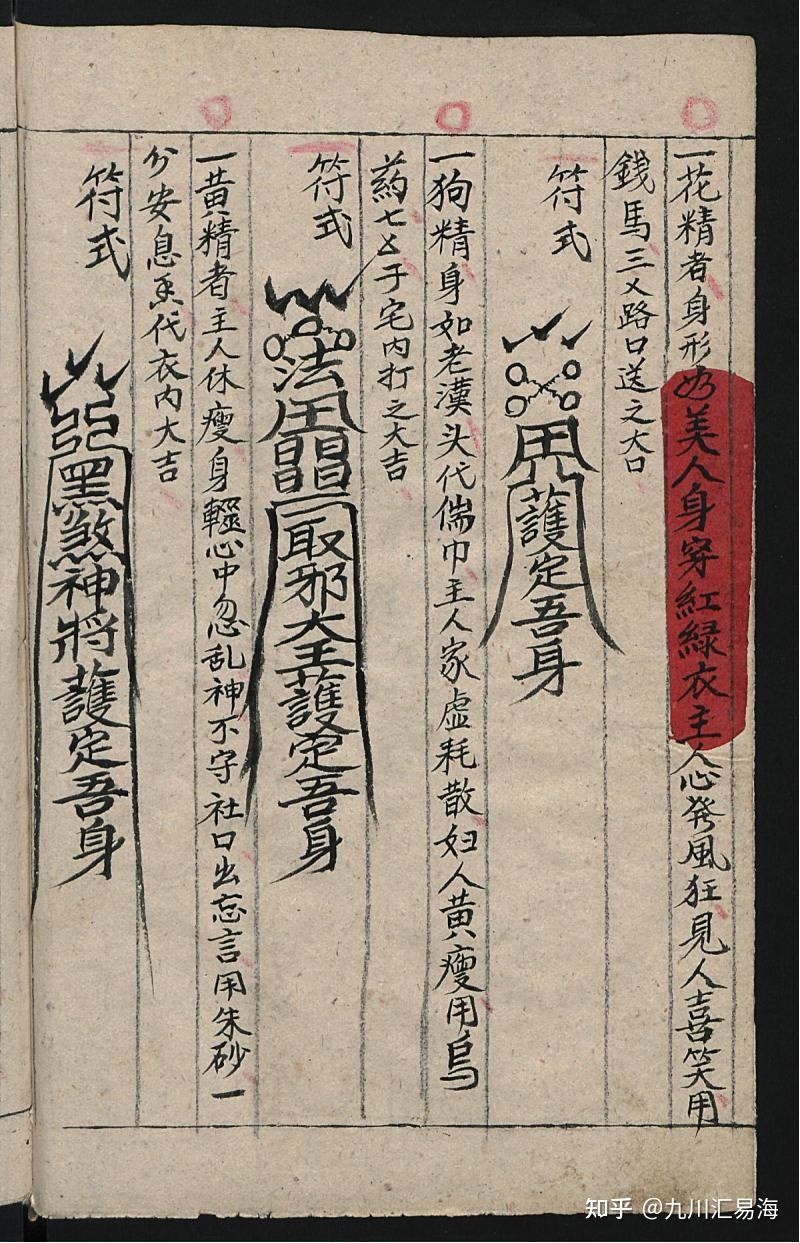 一花精者身形如美人身穿紅緑衣主人心発風狂見人喜笑用
錢馬三乂路口送之大口
符式
護定吾身
一狗精身如老漢头代儒巾主人家虚耗散妇人黄瘦用烏
药七七于宅内打之大吉
符式
法用晶
取邪大王護定吾身
一黄精者主人休瘦身輕心中忽乱神不守社口出忘言用朱砂一
分安息香代衣内大吉
符式
黑煞神將護定吾身
知乎 @九川汇易海